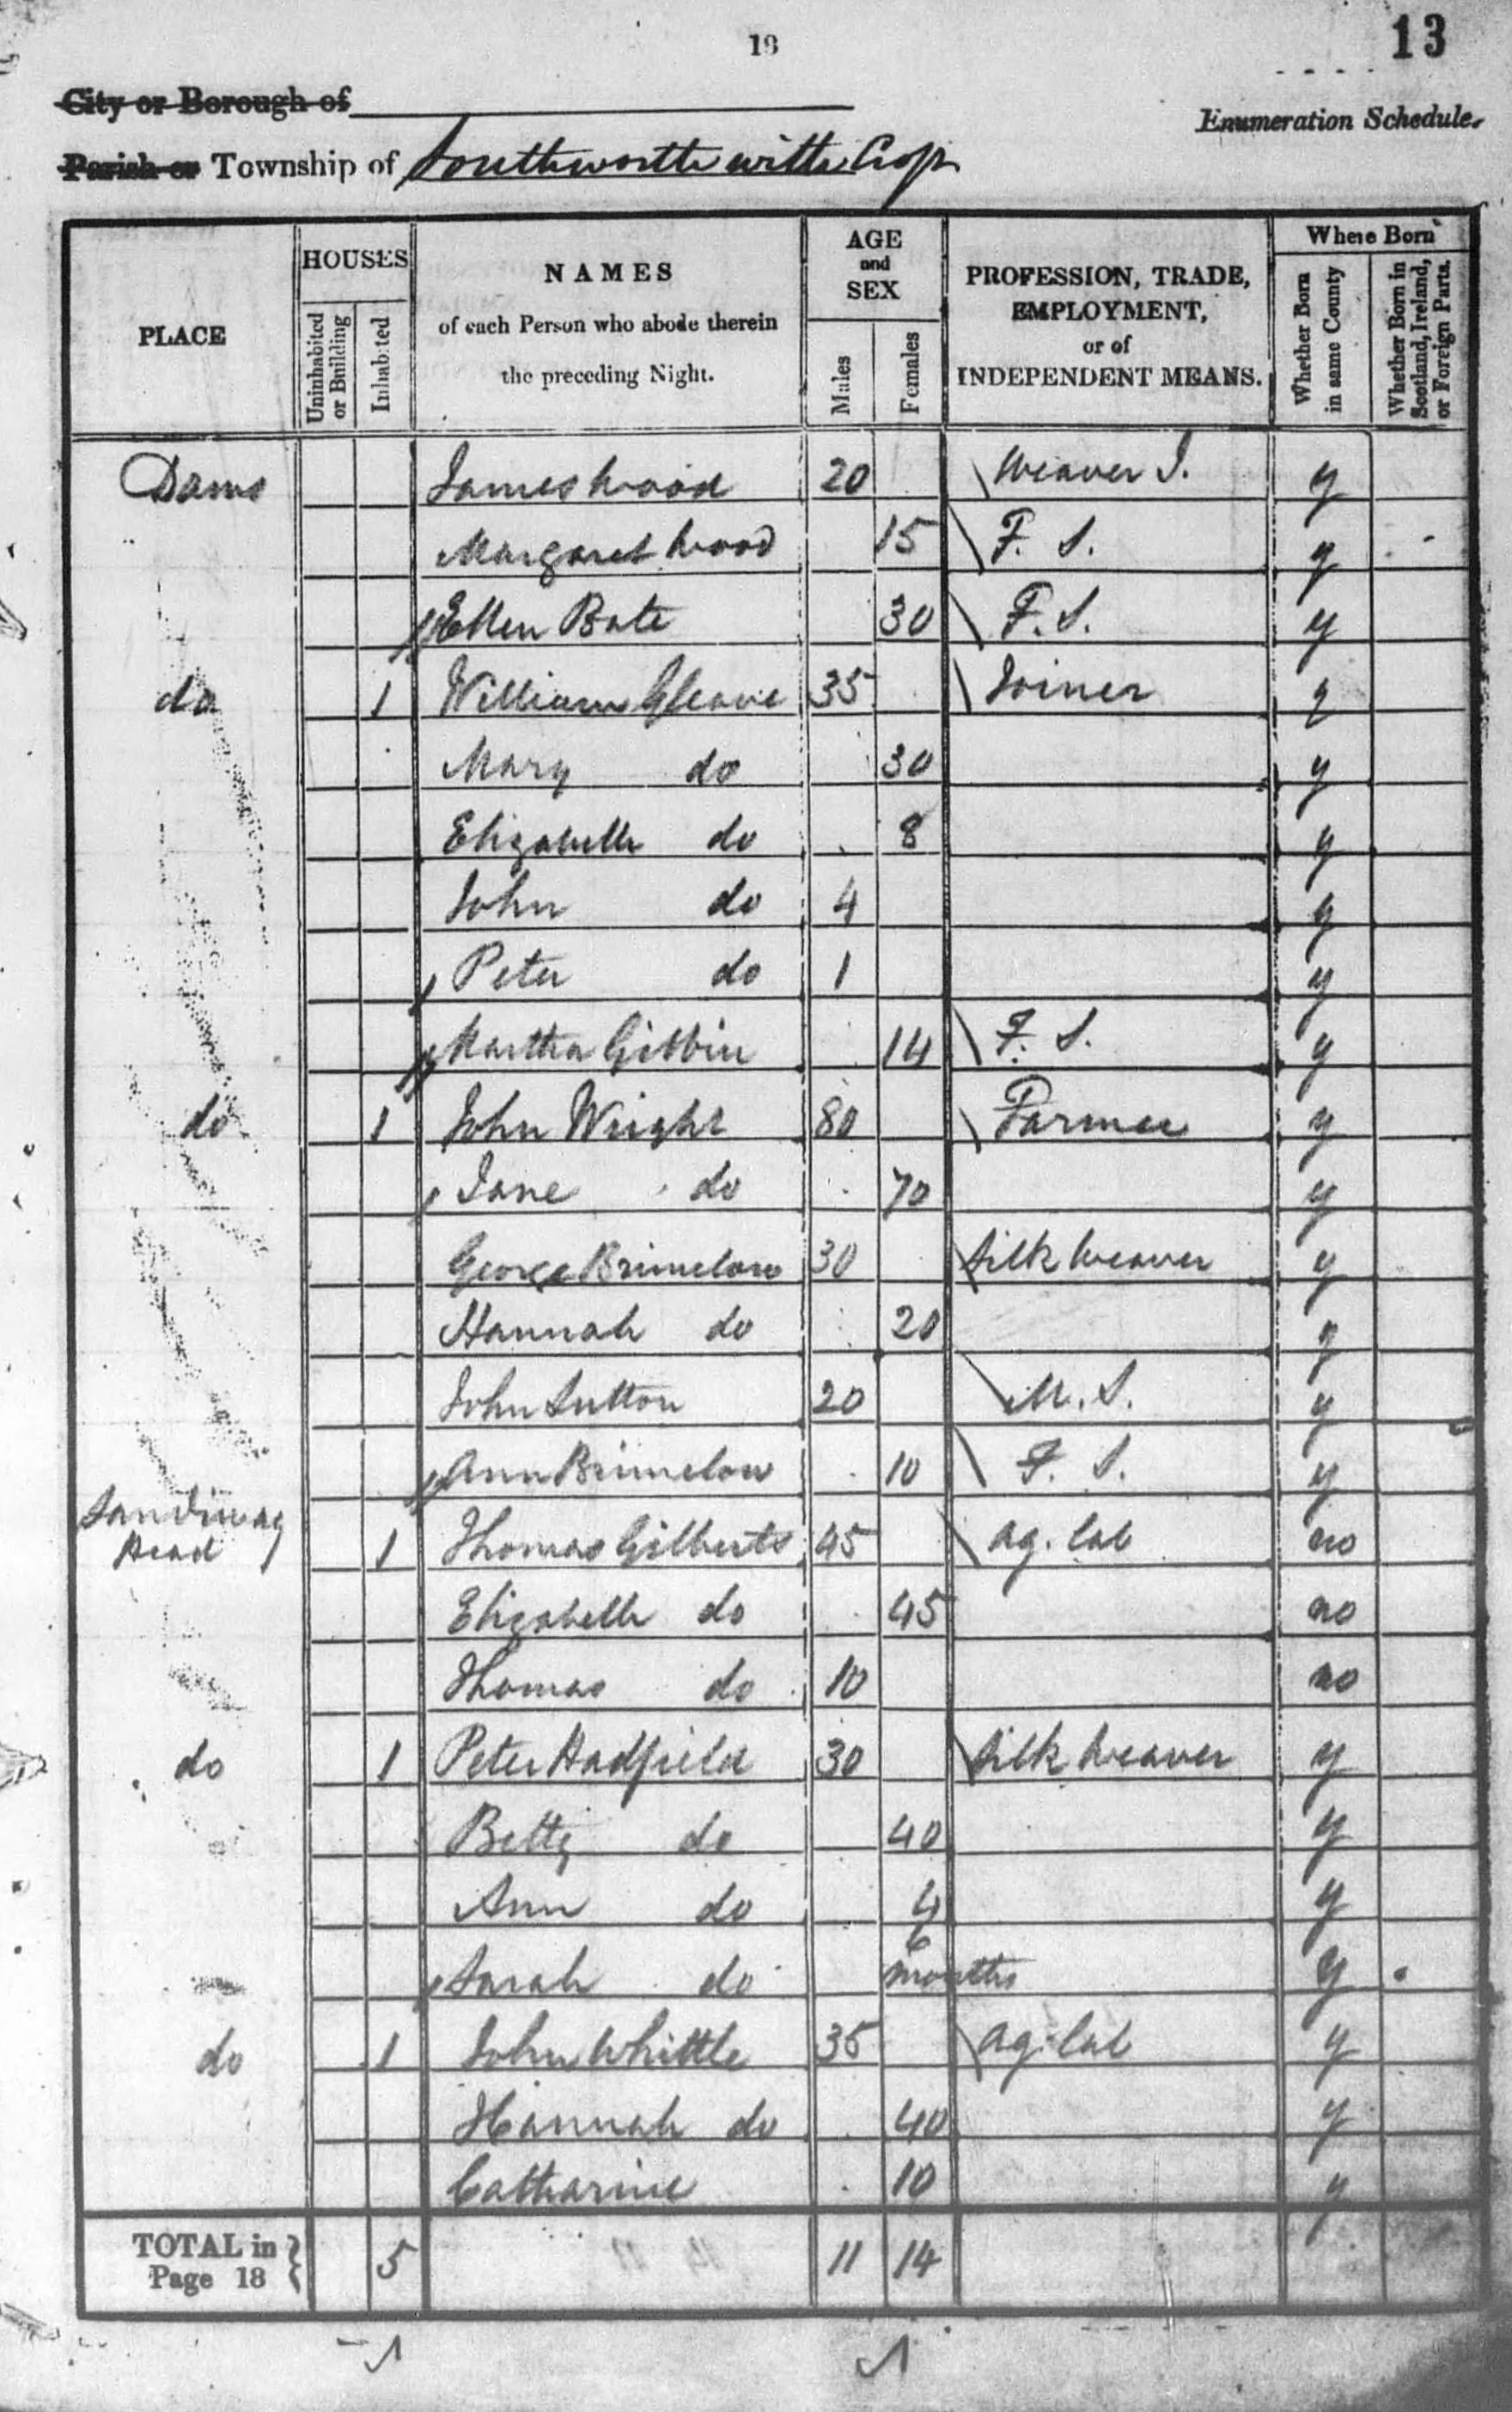 18
13
City or Borough of
Enumeration Schedule.
Parish or Township of Southworth with Crop
PLACE
HOUSES
Uninhabited or Building
Inhabited
NAMES
of each Person who abode therein
the preceding Night.
AGE
and
SEX
Males
Females
PROFESSION, TRADE,
EMPLOYMENT,
or of
INDEPENDENT MEANS.
Where Born
Whether Born in same County
Whether Born in Scotland, Ireland, or Foreign Parts.
Dams James Wood 20 Weaver J. y
Margaret Wood 15 F. S. y
Ellen Bate 30 F. S. y
do 1 William Gleave 35 Joiner y
Mary do 30 y
Elizabeth do 8 y
John do 4 y
Peter do 1 y
Martha Gibbin 14 F. S. y
do 1 John Wright 80 Farmer y
Jane do 70 y
George Brimelow 30 Silk Weaver y
Hannah do 20 y
John Sutton 20 M. S. y
Ann Brimelow 10 F. S. y
Sandiway Head 1 Thomas Gilberts 45 Ag. Lab no
Elizabeth do 45 no
Thomas do 10 no
do 1 Peter Hadfield 30 Silk Weaver y
Betty do 40 y
Ann do 4 y
Sarah do 6 months y
do 1 John Whittle 35 Ag. Lab y
Hannah do 40 y
Catharine 10 y
TOTAL in Page 18 } 5 11 14